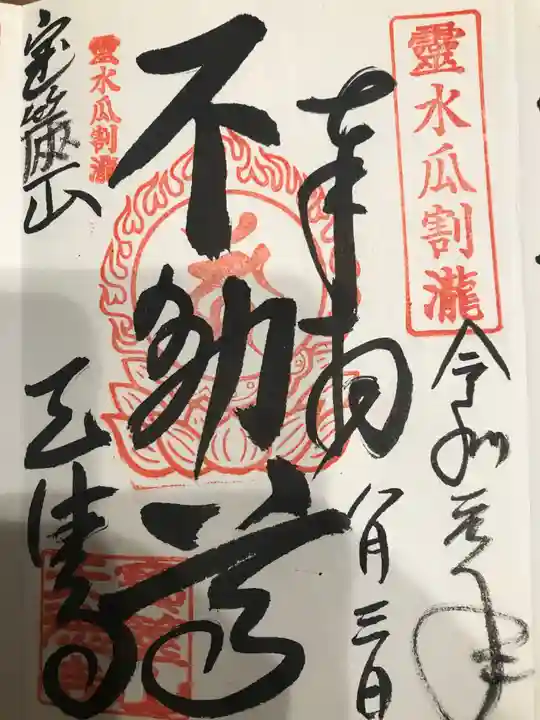 靈水瓜割瀧
令和元年
奉拝
八月三日
不動尊
靈水瓜割瀧
宝篋山
天徳寺